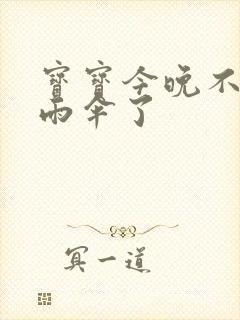 寶寶今晚不
雨伞了
冥一道